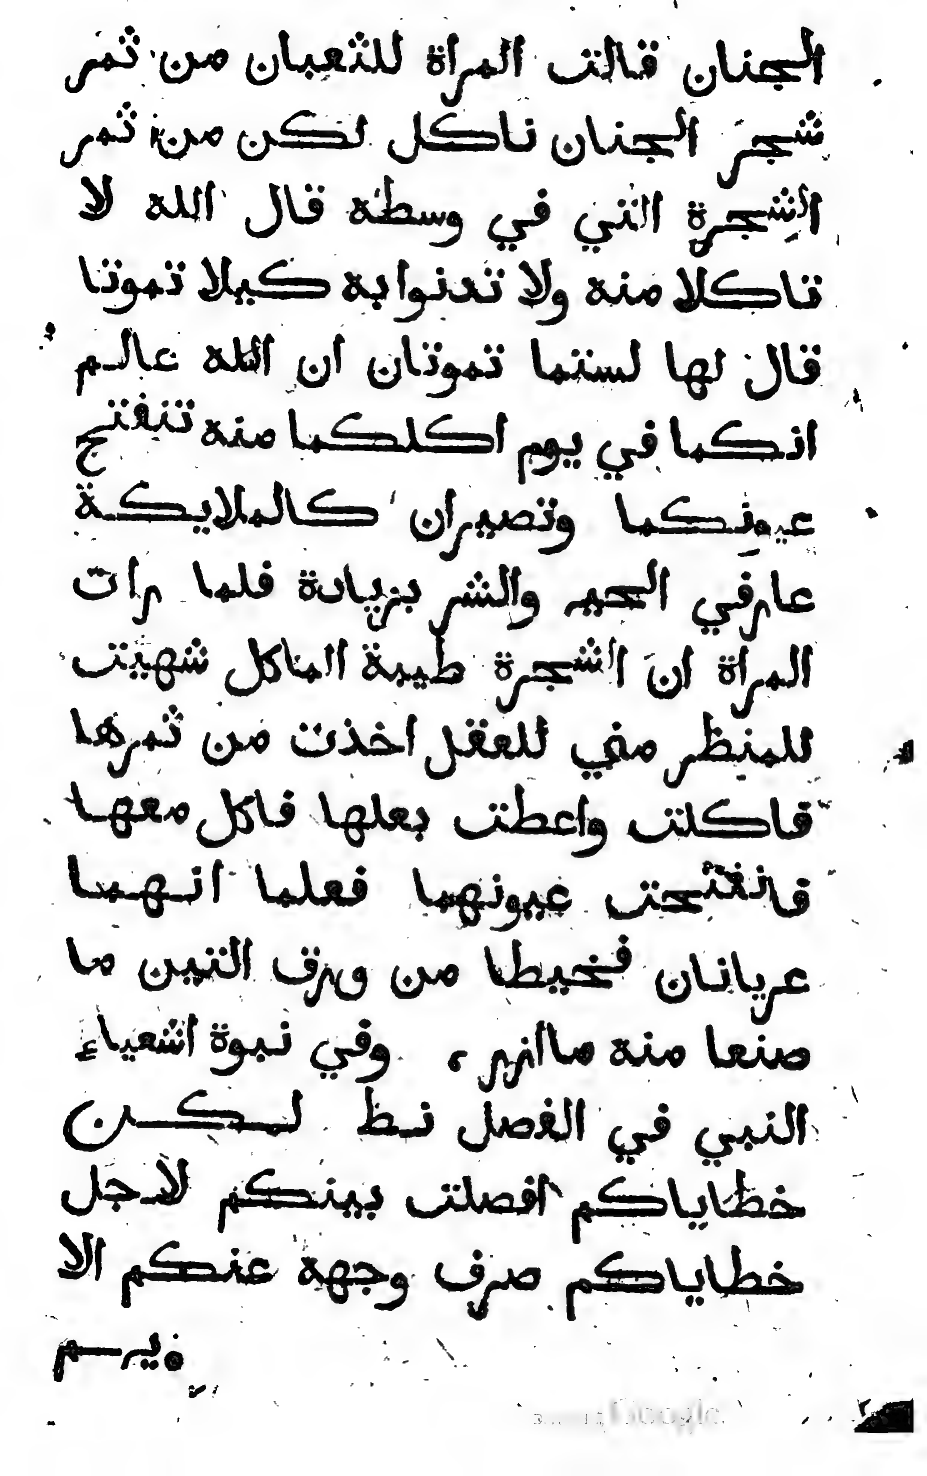 الجنان قالت المراة للثعبان من ثمر
شجر الجنان ناكل لكن من ثمر
الشجرة التي في وسطه قال الله لا
تاكلا منه ولا تدنوا به كيلا تموتا
قال لها لستما تموتان ان الله عالم
انكما في يوم اكلكما منه تنفتح
عيونكما وتصيران كالملايكة
عارفي الخير والشر بزيادة فلما رات
المراة ان الشجرة طيبة الماكل شهيت
للمنظر منى للعقل اخذت من ثمرها
فاكلت واعطت بعلها فاكل معها
فانفتحت عيونهما فعلما انهما
عريانان فخيطا من ورق التين ما
صنعا منه مازر، وفي نبوة اشعياء
النبي في الفصل نط لكن
خطاياكم افصلت بينكم لاجل
خطاياكم صرف وجهه عنكم الا
يرحم
Google